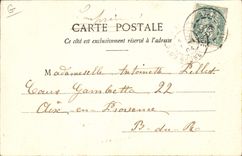 CARTE POSTALE
Ce côté est exclusivement réservé à l'adresse
Mademoiselle Antoinette Pellet
Cours Gambetta 22
Aix en Provence
B. du R.